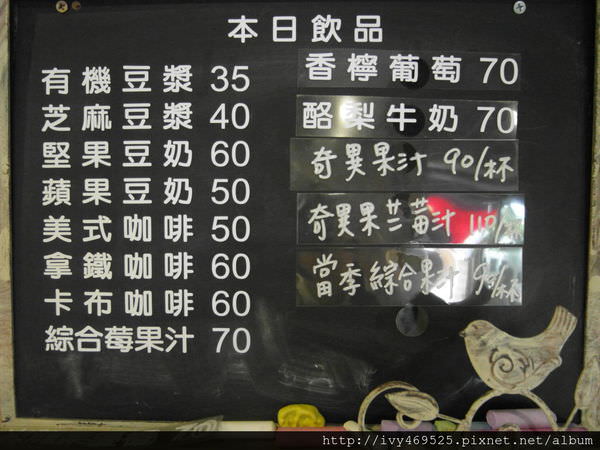 本日飲品
有機豆漿 35
芝麻豆漿 40
堅果豆奶 60
蘋果豆奶 50
美式咖啡 50
拿鐵咖啡 60
卡布咖啡 60
綜合莓果汁 70
香檸葡萄 70
酪梨牛奶 70
奇異果汁 90/杯
奇異果芒莓汁 110/杯
當季綜合果汁 90/杯
http://ivy469525.pixnet.net/album